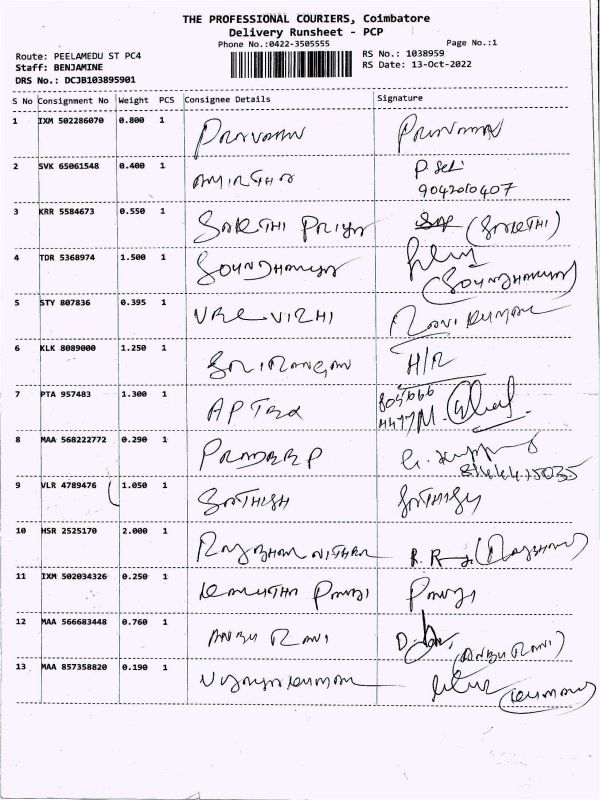 THE PROFESSIONAL COURIERS, Coimbatore
Delivery Runsheet - PCP
Phone No.:0422-3505555
Page No.:1
Route: PEELAMEDU ST PC4
RS No.: 1038959
Staff: BENJAMINE
RS Date: 13-Oct-2022
DRS No.: DCJB103895901
S No Consignment No Weight PCS Consignee Details Signature
1 IXM 502286070 0.800 1
2 SVK 65061548 0.400 1 AMIRTHA
9042010407
3 KRR 5584673 0.550 1 SARETHI PRIYA (SARETHI)
4 TDR 5368974 1.500 1 SOUNDHARIYA
(SOUNDHARIYA)
5 STY 807836 0.395 1 RAVI KUMAR
6 KLK 8089000 1.250 1 H/R
7 PTA 957483 1.300 1
8 MAA 568222772 0.290 1 PRADEEP
9 VLR 4789476 1.050 1 SATHISH SATHISH
10 HSR 2525170 2.000 1
11 IXM 502034326 0.250 1
12 MAA 566683448 0.760 1 ANBU RANI
(ANBU RANI)
13 MAA 857358820 0.190 1 VIJAYAKUMAR (KUMAR)